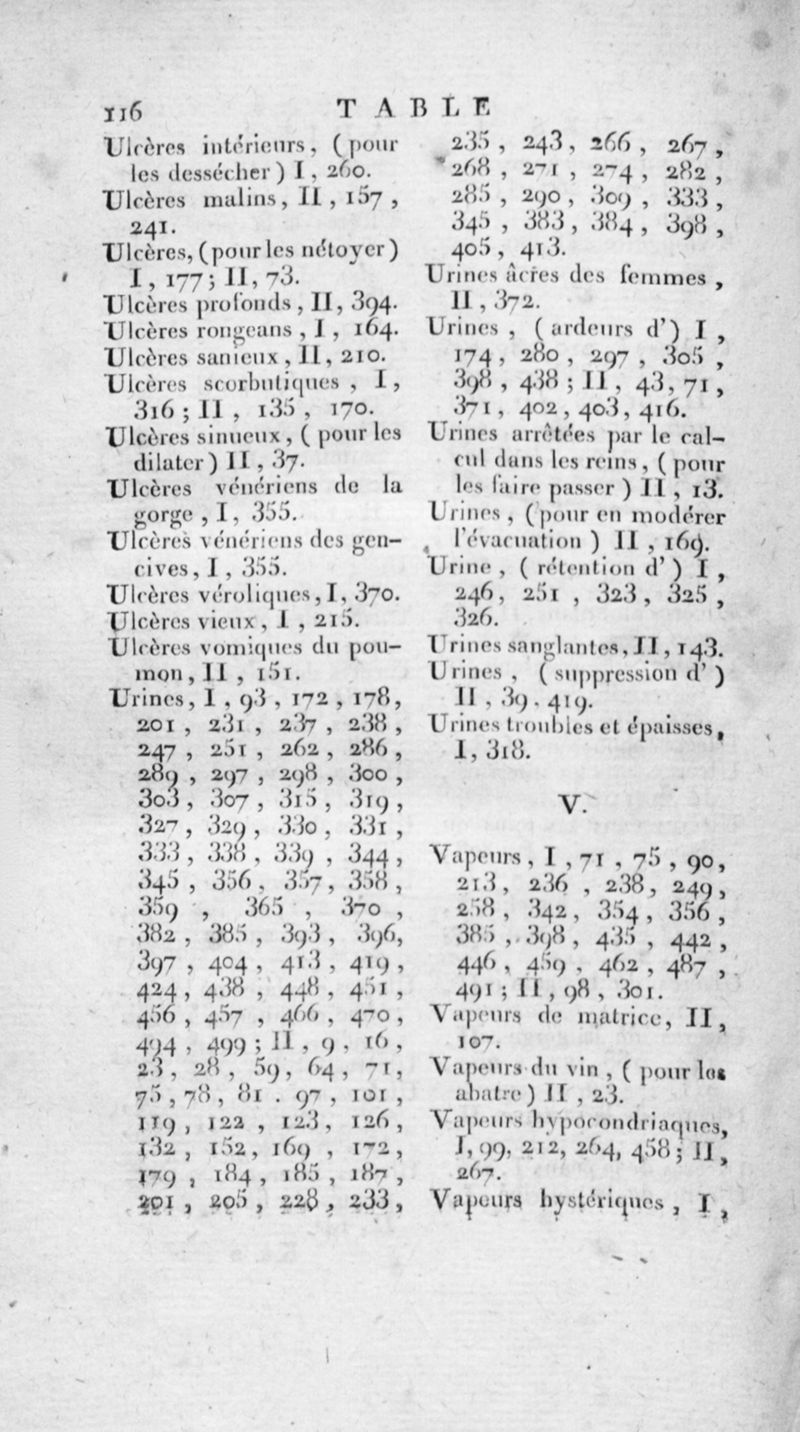 116
TABLE
Ulcères intérieurs, (pour
les dessécher) I, 260.
Ulcères malins, II, 157,
241.
Ulcères, (pour les nétoyer)
I, 177; II, 73.
Ulcères profonds, II, 394.
Ulcères rongeans, I, 164.
Ulcères sanieux, II, 210.
Ulcères scorbutiques, I,
316; II, 135, 170.
Ulcères sinueux, (pour les
dilater) II, 37.
Ulcères vénériens de la
gorge, I, 355.
Ulcères vénériens des gen-
cives, I, 355.
Ulcères véroliques, I, 370.
Ulcères vieux, I, 215.
Ulcères vomiques du pou-
mon, II, 151.
Urines, I, 93, 172, 178,
201, 231, 237, 238,
247, 251, 262, 286,
289, 297, 298, 300,
303, 307, 315, 319,
327, 329, 330, 331,
333, 338, 339, 344,
345, 356, 357, 358,
359, 365, 370,
382, 385, 393, 396,
397, 404, 413, 419,
424, 438, 448, 451,
456, 457, 466, 470,
494, 499; II, 9, 16,
23, 28, 59, 64, 71,
75, 78, 81. 97, 101,
119, 122, 123, 126,
132, 152, 169, 172,
179, 184, 185, 187,
201, 205, 228, 233,
235, 243, 266, 267,
268, 271, 274, 282,
285, 290, 309, 333,
345, 383, 384, 398,
405, 413.
Urines âcres des femmes,
II, 372.
Urines, (ardeurs d') I,
174, 280, 297, 305,
398, 438; II, 43, 71,
371, 402, 403, 416.
Urines arrêtées par le cal-
cul dans les reins, (pour
les faire passer) II, 13.
Urines, (pour en modérer
l'évacuation) II, 169.
Urine, (rétention d') I,
246, 251, 323, 325,
326.
Urines sanglantes, II, 143.
Urines, (suppression d')
II, 39. 419.
Urines troubles et épaisses,
I, 318.
V.
Vapeurs, I, 71, 75, 90,
213, 236, 238, 249,
258, 342, 354, 356,
385, 398, 435, 442,
446, 459, 462, 487,
491; II, 98, 301.
Vapeurs de matrice, II,
107.
Vapeurs du vin, (pour les
abatre) II, 23.
Vapeurs hypocondriaques,
I, 99, 212, 264, 458; II,
267.
Vapeurs hystériques, I,